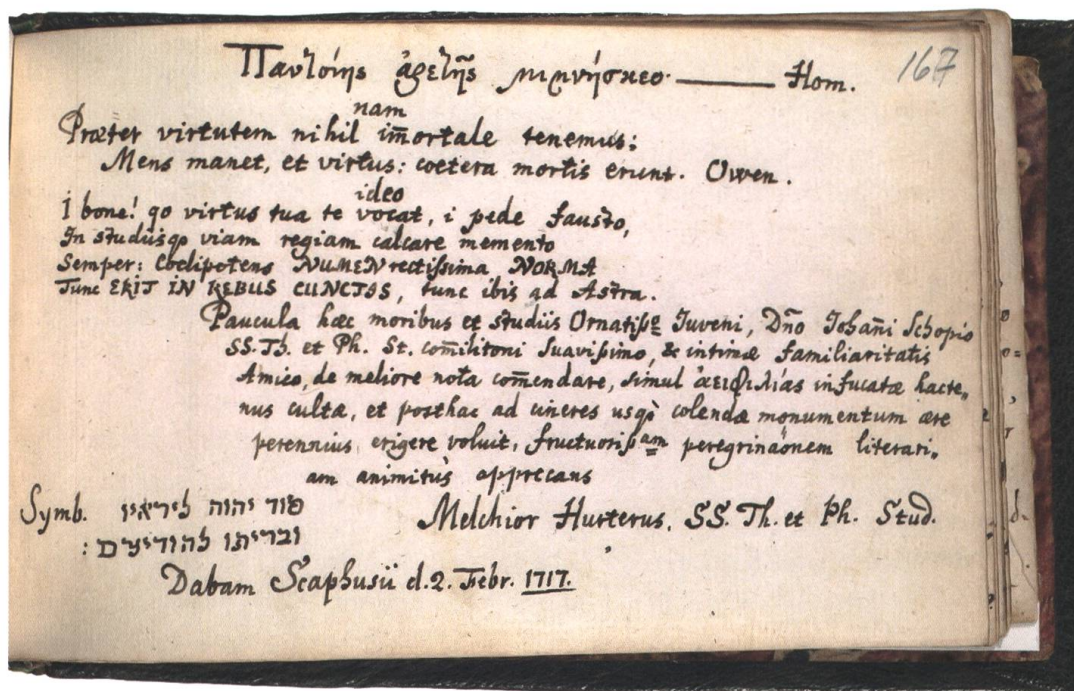 Παντοίης ἀρετῆς μιμνήσκεο. —— Hom.
167
nam
Præter virtutem nihil im̄ortale tenemus:
Mens manet, et virtus: coetera mortis erunt. Owen.
ideo
I bone! qo virtus tua te vocat, i pede fausto,
In studiisq3 viam regiam calcare memento
Semper: Coelipotens NUMEN rectissima NORMA
Tunc ERIT IN REBUS CUNCTIS, tunc ibis ad Astra.
Paucula hæc moribus et studiis Ornatißo Iuveni, Dn̄o Iohan̄i Schopio
SS. Th. et Ph. St. com̄ilitoni Suavißimo, & intimæ familiaritatis
Amico, de meliore nota com̄endare, simul ἀειφιλίας infucatæ hacte„
nus cultæ, et posthac ad cineres usq3 colendæ monumentum ære
perennius erigere voluit, fructuosißam peregrinaōnem literari„
am animitùs apprecans
Symb. סוד יהוה ליראיו
ובריתו להודיעם :
Melchior Hurterus, SS. Th. et Ph. Stud.
Dabam Scaphusii d. 2. Febr. 1717.